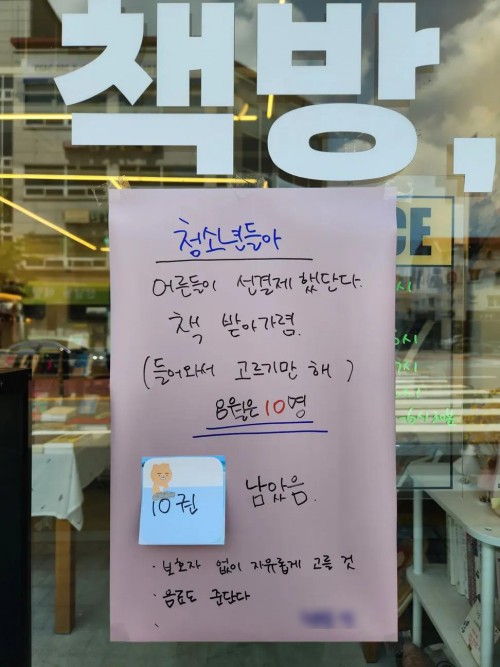 책방,
청소년들아
어른들이 선결제 했단다.
책 받아가렴.
(들어와서 고르기만 해)
8월은 10명
10권 남았음.
· 보호자 없이 자유롭게 고를 것
· 음료도 준단다